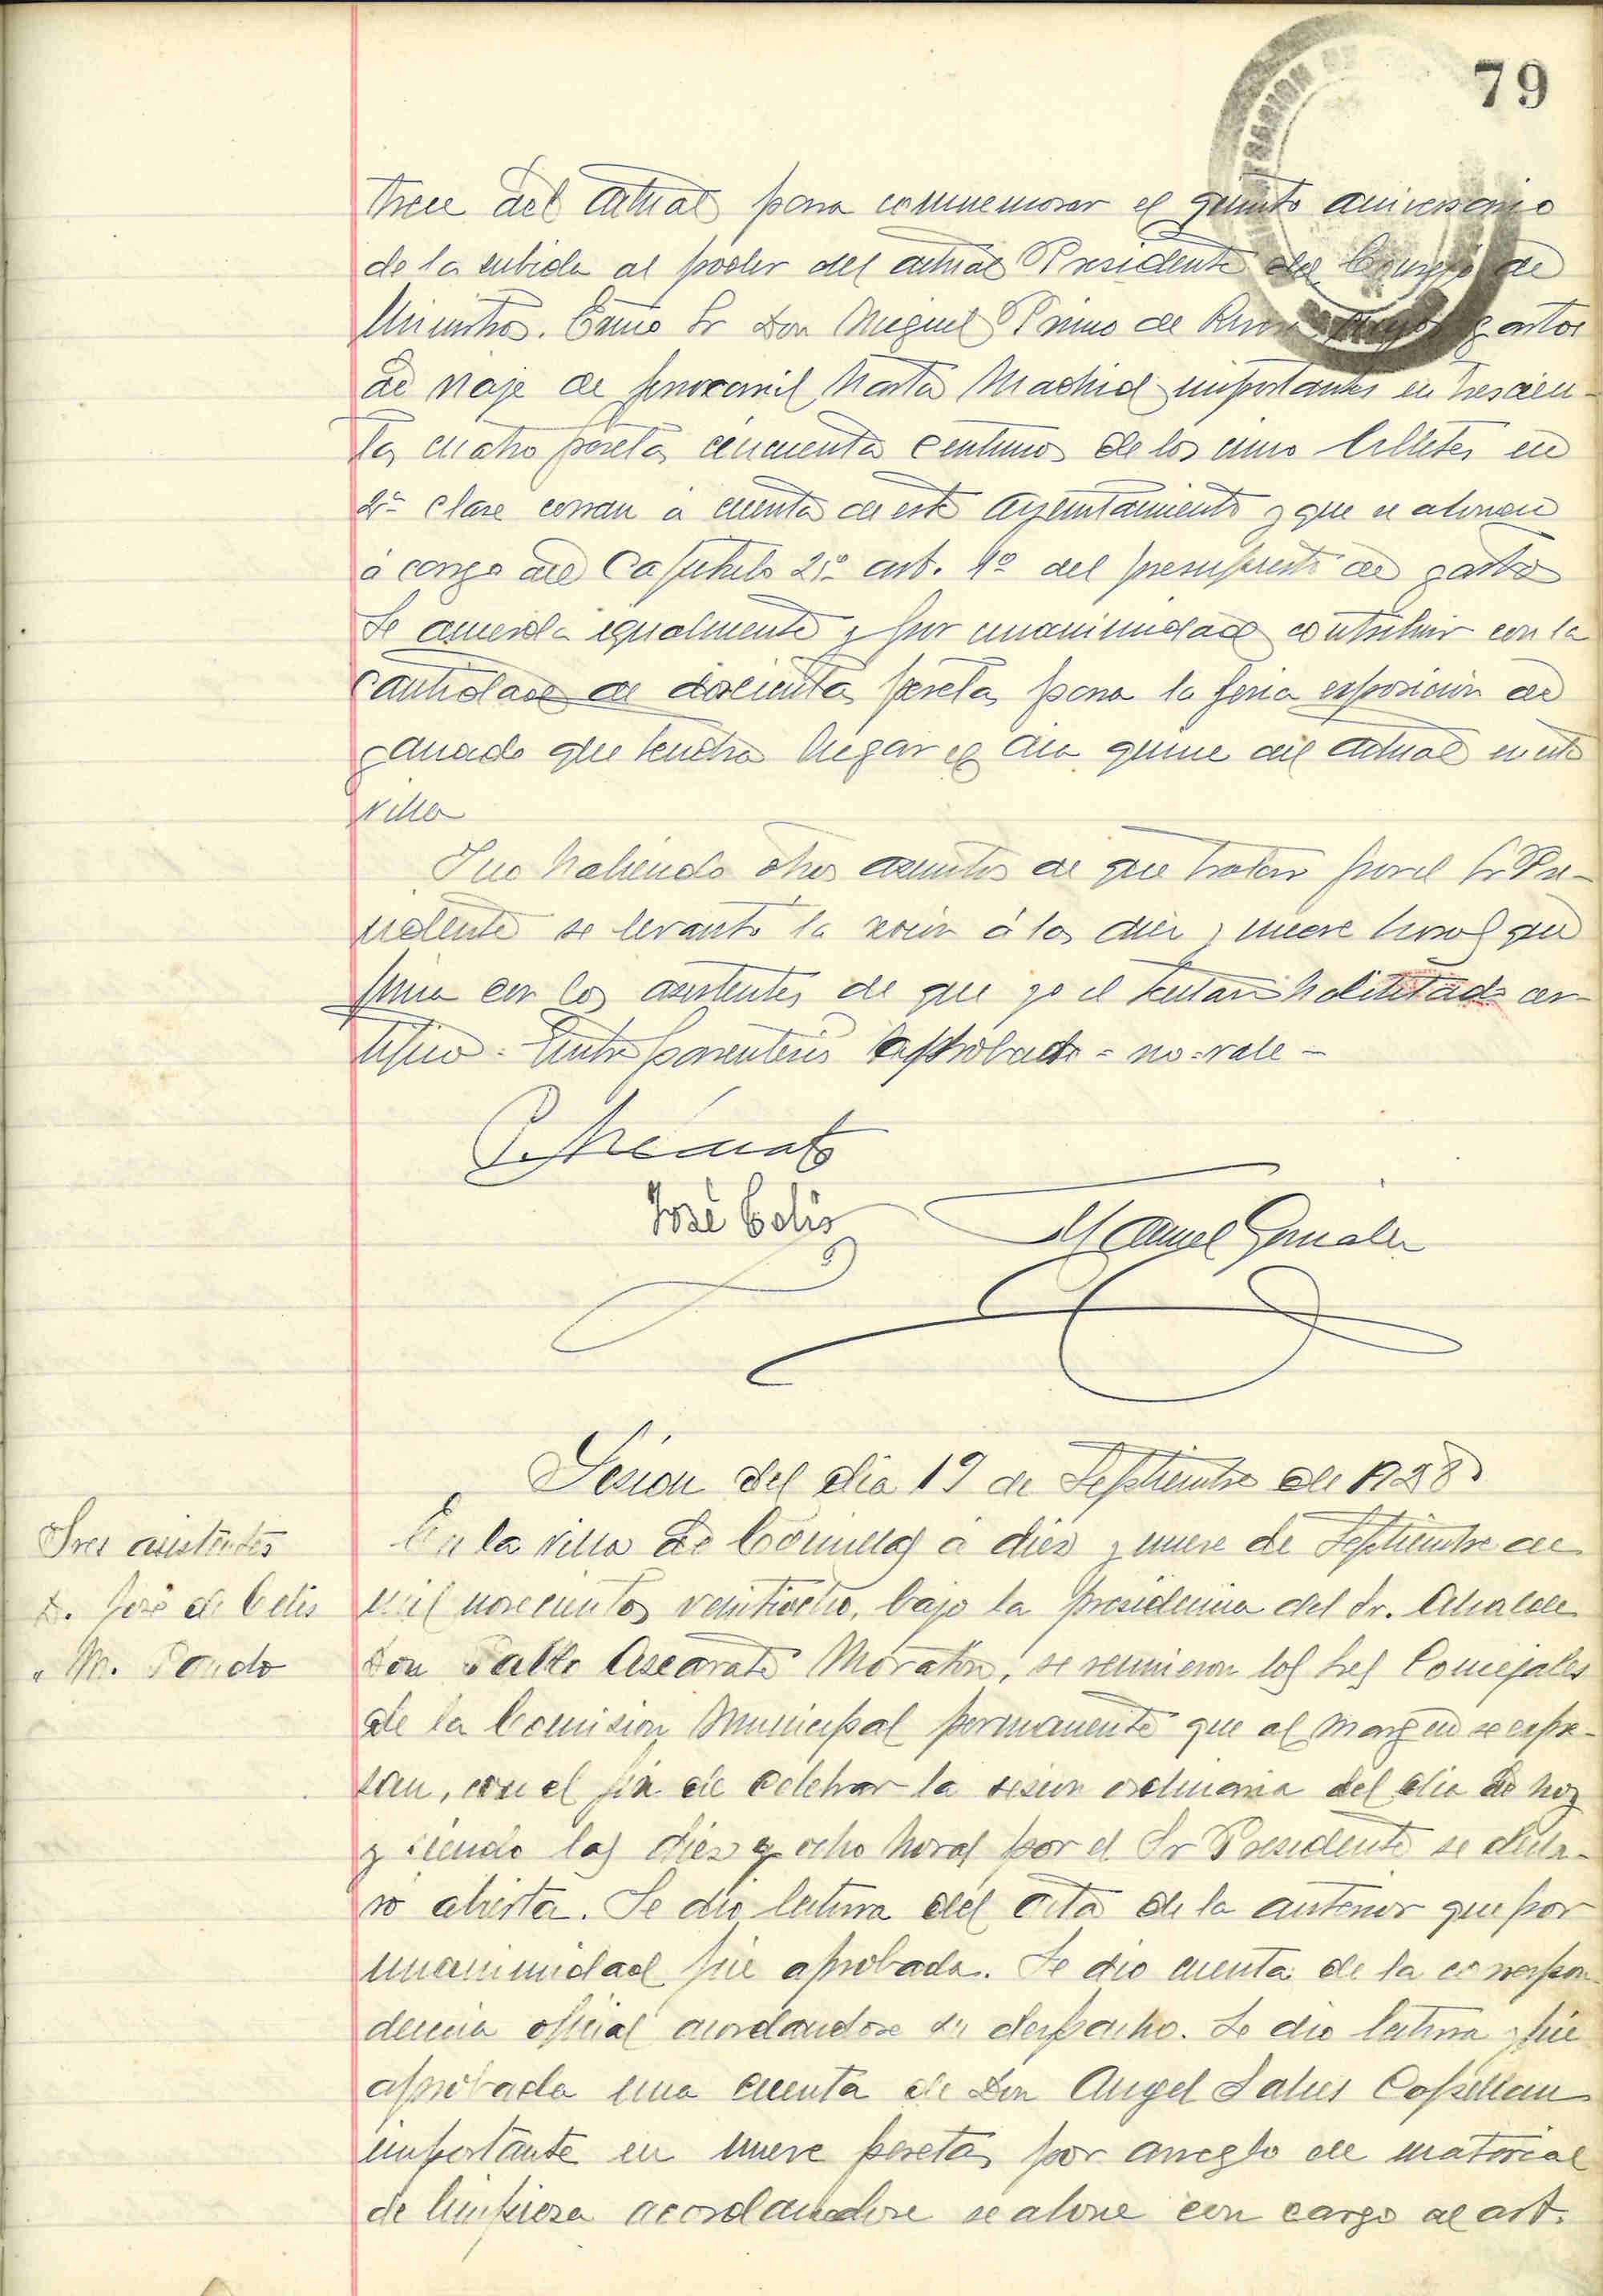 79
trece del actual para conmemorar el quinto aniversario
de la subida al poder del actual Presidente del Consejo de
Ministros. Excmo Sr Don Miguel Primo de Rivera cuyos gastos
de viaje de ferrocarril hasta Madrid importantes en trescien-
tas cuatro pesetas cincuenta centimos de los cinco billetes en
2ª clase corran á cuenta de este Ayuntamiento y que se abonen
á cargo del Capitulo art. 1º del presupuesto de gastos
Se acuerda igualmente y por unanimidad contribuir con la
cantidad de doscientas pesetas para la feria exposición de
ganado que tendra lugar el dia quince del actual en esta
villa
Y no habiendo otros asuntos de que tratar por el Sr Pre-
sidente se levantó la sesión á las diez y nueve horas que
firma con los asistentes de que yo el habilitado cer-
tifico = Entre parentesis aprobado = no = vale -
José Celis
Manuel Gonzalez
Sesion del dia 19 de Septiembre de 1928
Sres asistentes
D. José de Celis
" M. Pando
En la villa de Comillas á diez y nueve de Septiembre de
mil novecientos veintiocho, bajo la presidencia del Sr. Alcalde
Don Pablo Ascarate Moratón, se reunieron los Sres Concejales
de la Comision Municipal permanente que al margen se expre-
san, con el fin de celebrar la sesion ordinaria del dia de hoy
y siendo las diez y ocho horas por el Sr Presidente se decla-
ró abierta. Se dio lectura del acta de la anterior que por
unanimidad fué aprobada. Se dio cuenta de la correspon-
dencia oficial acordandose su despacho. Se dio lectura y fué
aprobada una cuenta de Don Angel Capellan
importante en nueve pesetas por arreglo de material
de limpieza acordandose se abone con cargo al art.